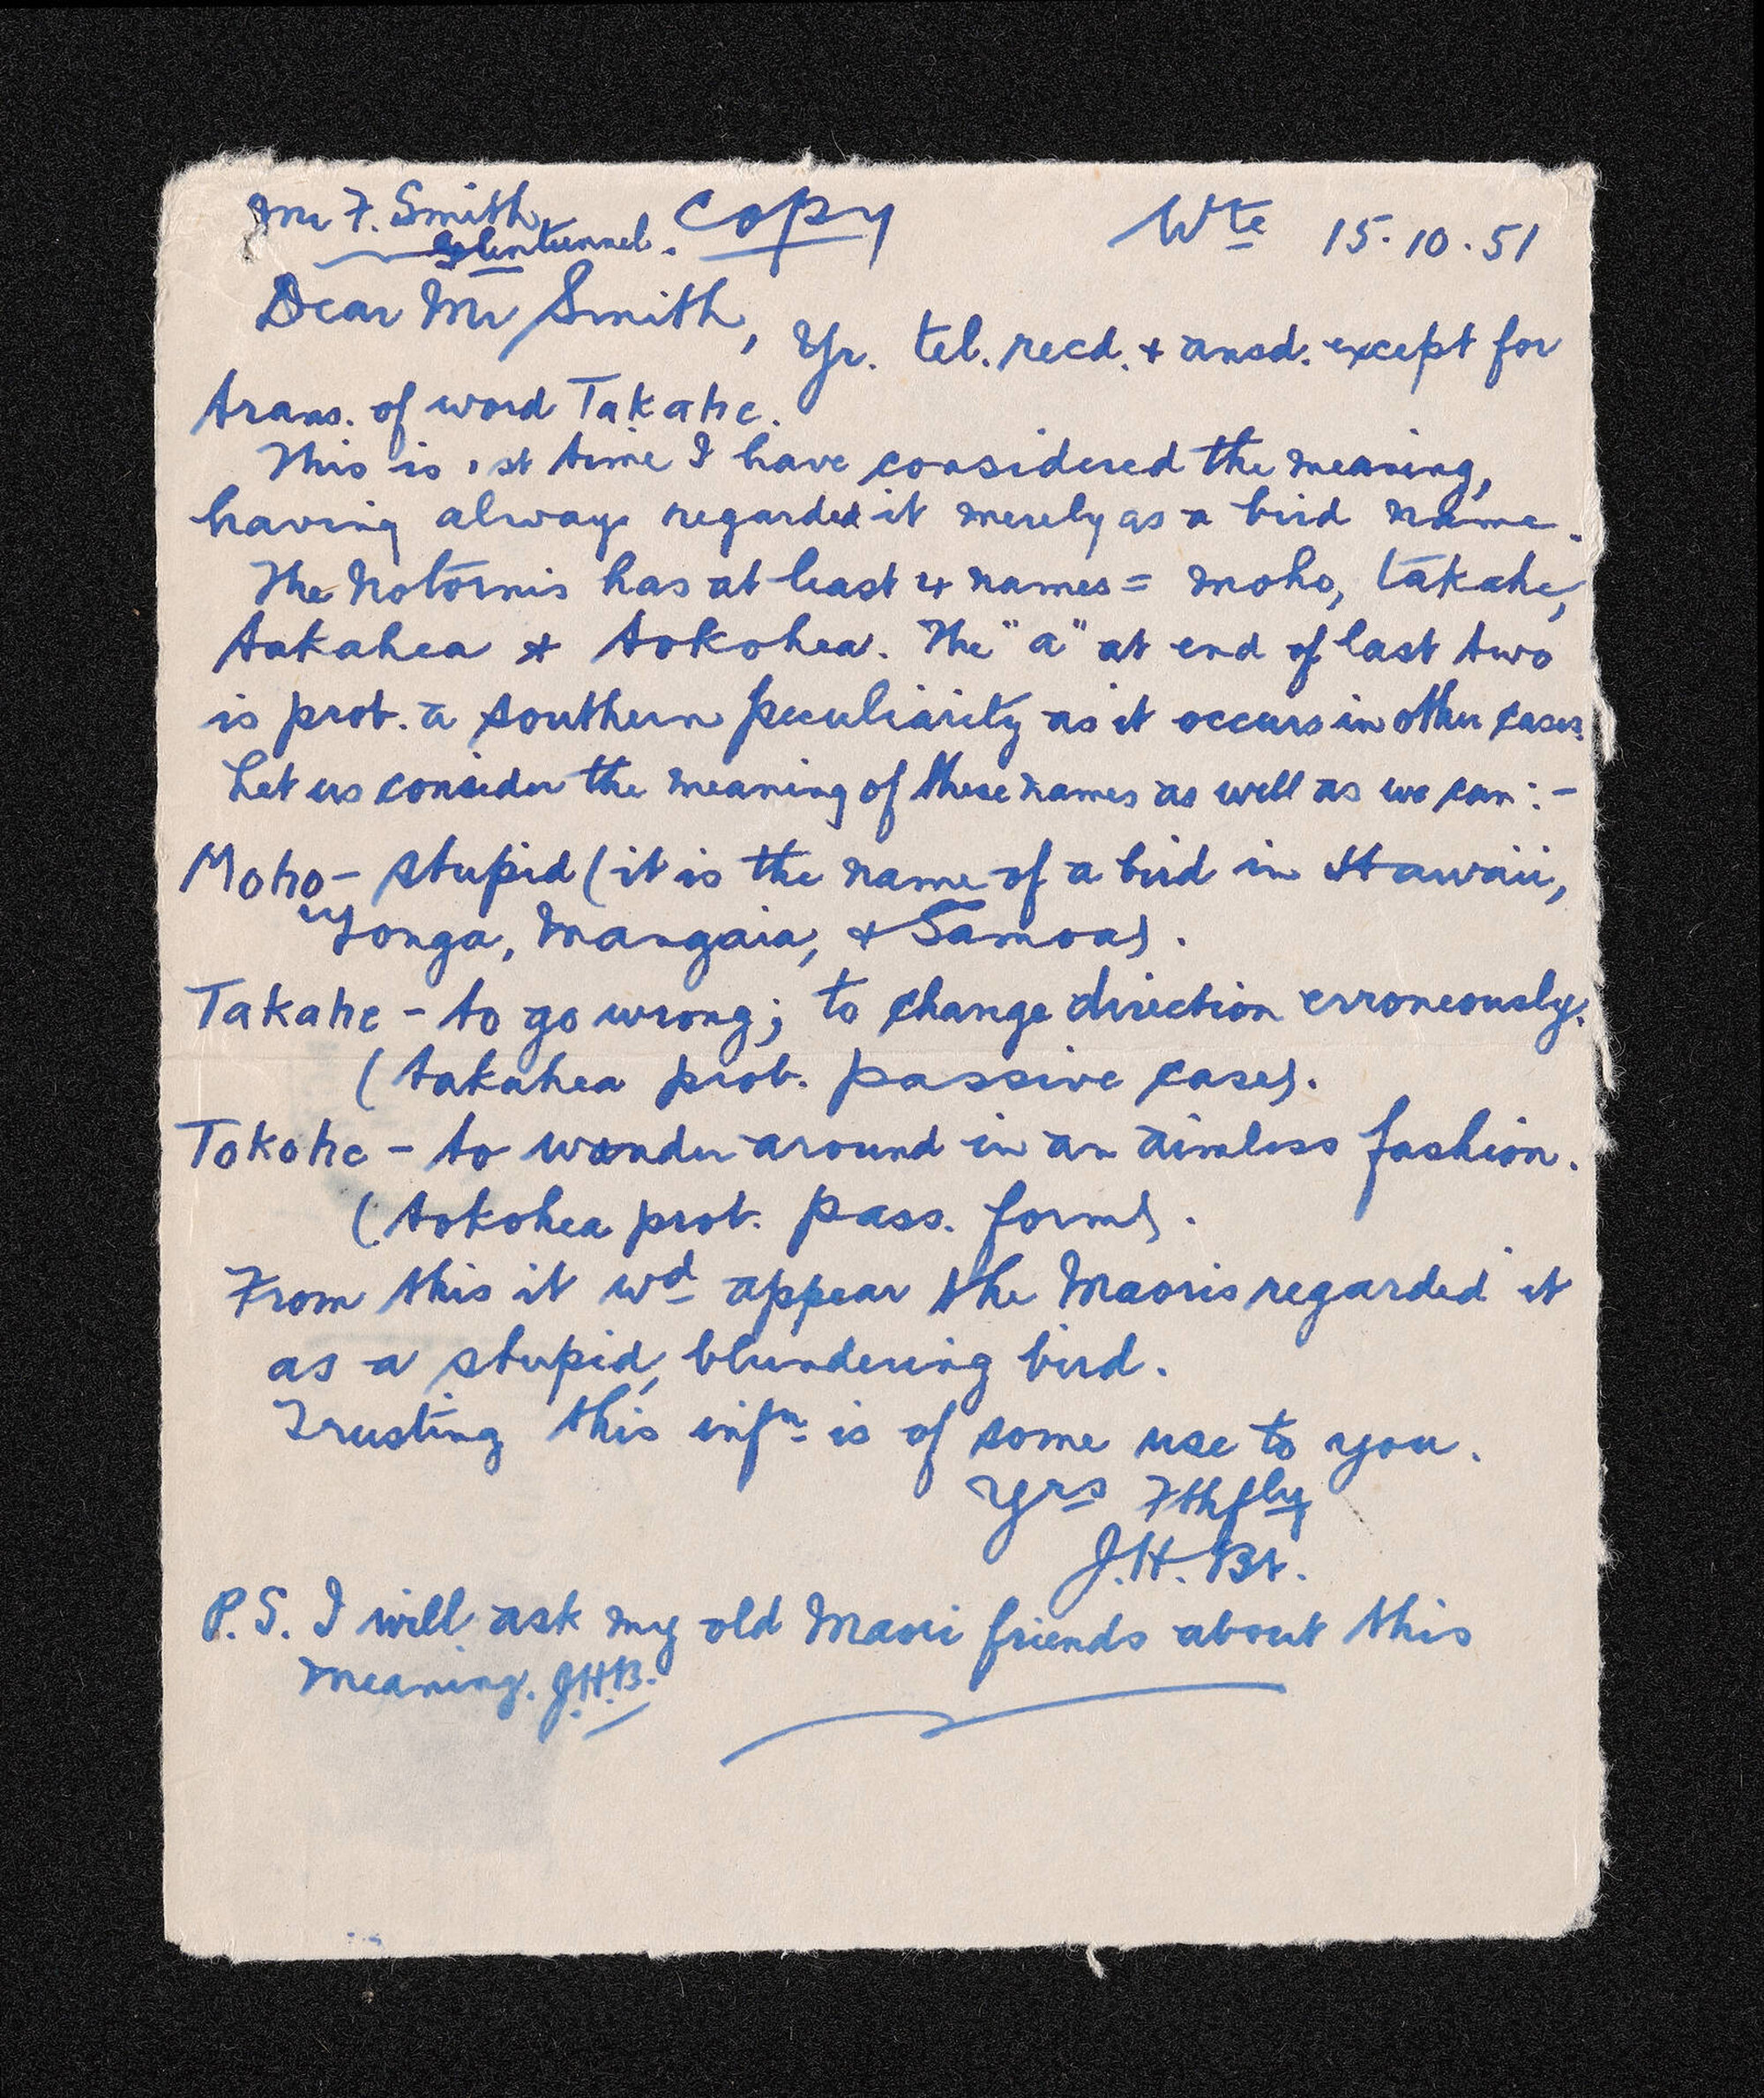 Mr F. Smith, Copy Wte 15.10.51
Glentunnel.
Dear Mr Smith, Yr. tel. recd. + ansd. except for
trans. of word Takahe.
This is 1st time I have considered the meaning,
having always regarded it merely as a bird name.
The Notornis has at least 4 names = moho, takahe,
takahea & tokohea. The "a" at end of last two
is prob. a southern peculiarity as it occurs in other cases.
Let us consider the meaning of these names as well as we can:-
Moho - stupid (it is the name of a bird in Hawaii,
Tonga, Mangaia, + Samoa).
Takahe - to go wrong; to change direction erroneously.
(takahea prob. passive case).
Tokohe - to wander around in an aimless fashion.
(tokohea prob. pass. form).
From this it wd appear the Maoris regarded it
as a stupid, blundering bird.
Trusting this infn is of some use to you.
Yrs Fthfly
J.H. Bt.
P.S. I will ask my old Maori friends about this
meaning. J.H.B.